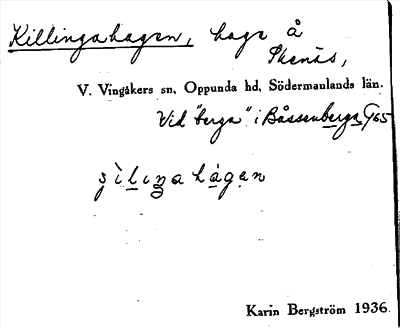 Killingahagen, hage å
Skenäs,
V. Vingåkers sn, Oppunda hd, Södermanlands län.
Vid "berga" i Båssenberga G65
Karin Bergström 1936.